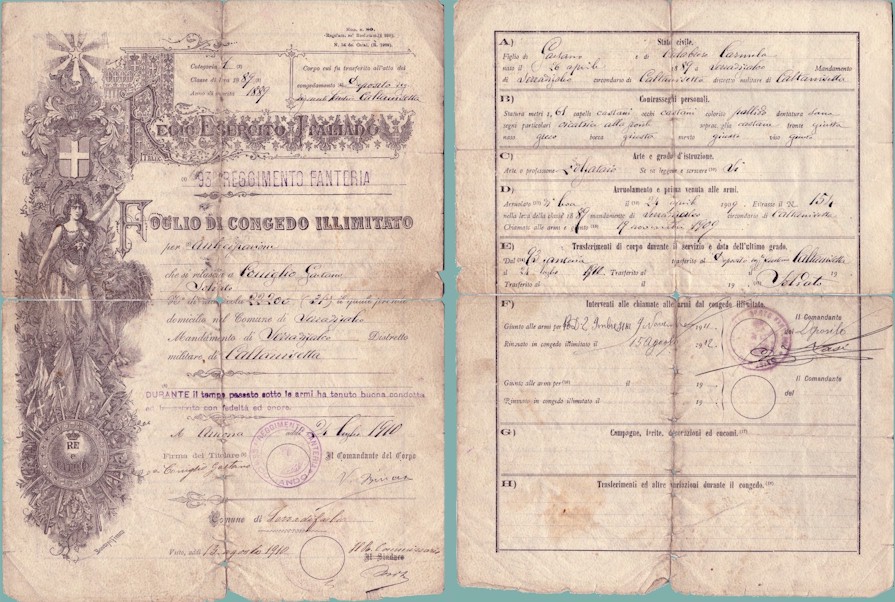 Mod. n. 89.
Categoria I
Classe di leva 1889
Anno di nascita 1889
Corpo cui fu trasferito all'atto del
congedamento Deposito in
Caltanissetta
REGIO ESERCITO ITALIANO
93° REGGIMENTO FANTERIA
FOGLIO DI CONGEDO ILLIMITATO
per anticipazione
che si rilascia a Coniglio Gaetano
Soldato
N° di matricola 22200 (31) il quale prende
domicilio nel Comune di Serradifalco
Mandamento di Serradifalco Distretto
militare di Caltanissetta
DURANTE il tempo passato sotto le armi ha tenuto buona condotta
ed ha servito con fedeltà ed onore.
A Ancona addì 24 luglio 1910
Firma del Titolare
Coniglio Gaetano
Il Comandante del Corpo
REGGIMENTO FANTERIA
Comune di Serradifalco
Visto, addì 13 agosto 1910
Il Sindaco
RE
A) Stato civile.
Figlio di Gaetano e di Calabrese Carmela
nato il 26 aprile 1889 a Serradifalco Mandamento
di Serradifalco circondario di Caltanissetta distretto militare di Caltanissetta
B) Contrassegni personali.
Statura metri 1,61 capelli castani occhi castani colorito pallido dentatura sana
segni particolari cicatrice alla fronte sopracciglia castane fronte giusta
naso greco bocca giusta mento giusto viso
C) Arte e grado d'istruzione.
Arte o professione Zolfataio Se sa leggere e scrivere Sì
D) Arruolamento e prima venuta alle armi.
Arruolato di leva il 29 aprile 1909 Estratto il N. 154
nella leva della classe 1889 mandamento di Serradifalco circondario di Caltanissetta
Chiamato alle armi e giunto 19 novembre 1909
E) Trasferimenti di corpo durante il servizio e data dell'ultimo grado.
Dal 93 fanteria trasferito al Deposito Caltanissetta
il 24 luglio 1910 Trasferito al il 19
Trasferto al il 19 Soldato
F) Interventi alle chiamate alle armi dal congedo illimitato.
Giunto alle armi per il 9 Novembre 1911
Rinviato in congedo illimitato il 15 agosto 1912
Il Comandante
del Deposito
Giunto alle armi per il 19
Rinviato in congedo illimitato il 19
Il Comandante
del
G) Campagne, ferite, decorazioni ed encomi.
H) Trasferimenti ed altre variazioni durante il congedo.